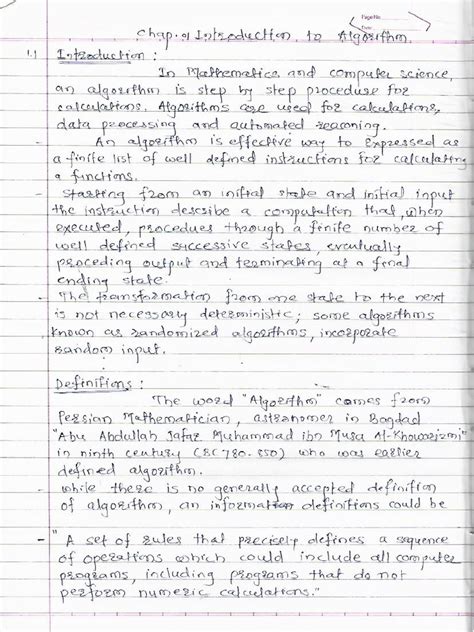 Page No.
Date
Chap. 01 Introduction to Algorithm.
1.1 Introduction :
In Mathematics and computer science,
an algorithm is step by step proceduse for
calculations. Algorithms are used for calculations,
data processing and automated reasoning.
- An algorithm is effective way to Expressed as
a finite list of well defined instructions for calculating
a functions.
- Starting from an initial state and initial input
the instruction describe a computation that, when
executed, procedues through a finite number of
well defined successive states, evatually
proceding output and terminating at a final
ending state.
- The transformation from one state to the next
is not necessary deterministic; some algorithms
known as randomized algorithms, incorporate
random input.
Definitions :
The word "Algorithm" comes from
Persian Mathematician, astronomer in Bogdad
"Abu Abdullah Jafar Muhammad ibn Musa Al-Khowarizmi"
in ninth century (BC 780-850) who was earlier
defined algorithm.
- while there is no generally accepted definition
of algorithm, an information definitions could be
- "A set of rules that precisely defines a sequence
of operations which could include all computer
programs, including programs that do not
perform numeric calculations."